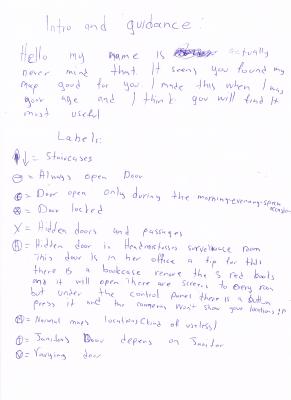 Intro and guidance:
Hello my name is actually
never mind that. It seems you found my
map good for you I made this when I was
your age and I think you will find it
most useful
Labels:
↑↓ = Staircases
= Always open Door
= Door open only during the morning-evening-special
= Door locked
X = Hidden doors and passages
= Hidden door in Headmistresses surveillance room
This door is in her office a tip for this
there is a bookcase remove the 5 red books
and it will open there are screens to every room
but under the control panel there is a button
press it and the cameras won't show your locations ;P
= Normal maps locations (kind of useless)
= Janitors Door depens on Janitor
= Varying door